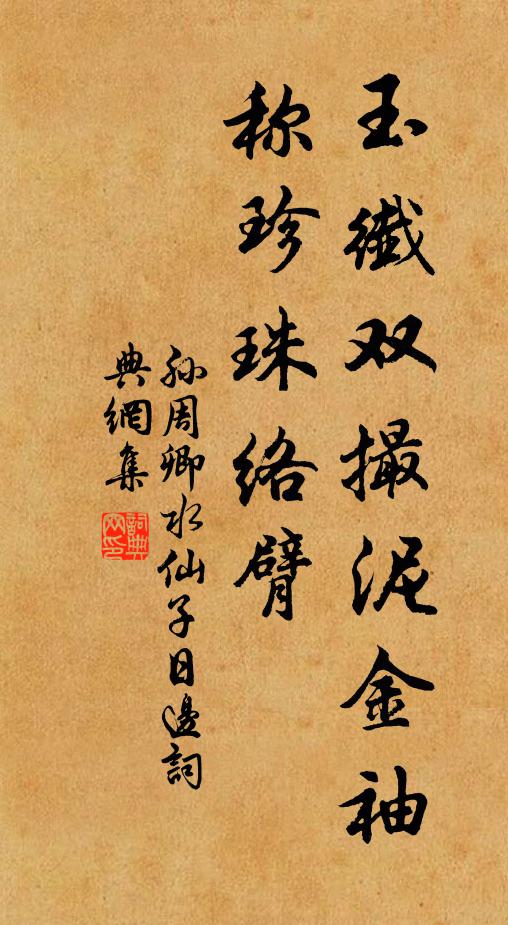 玉纖双撮泥金袖
称珍珠络臂
孙周卿水仙子日邊詞
典網集
詞典網印